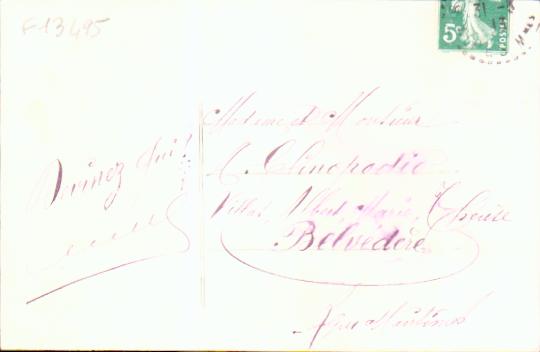 F 13495
5c
POSTES
Devinez Qui!
Madame et Monsieur
Clinopodie
Villa Albert, Marie, Thérèse
Belvédère
Alpes Maritimes